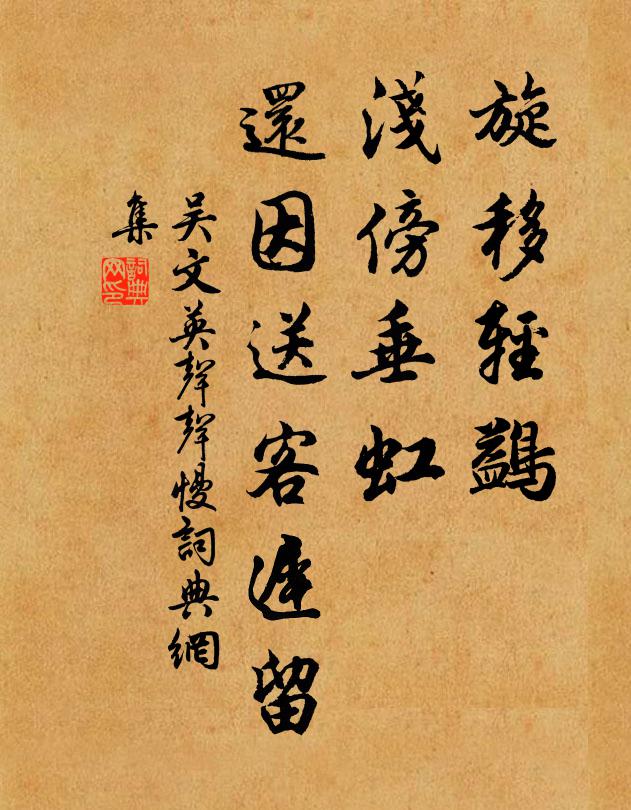 旋移輕鷁
淺傍垂虹
還因送客遲留
吴文英聲聲慢詞典網
集
詞典
网印